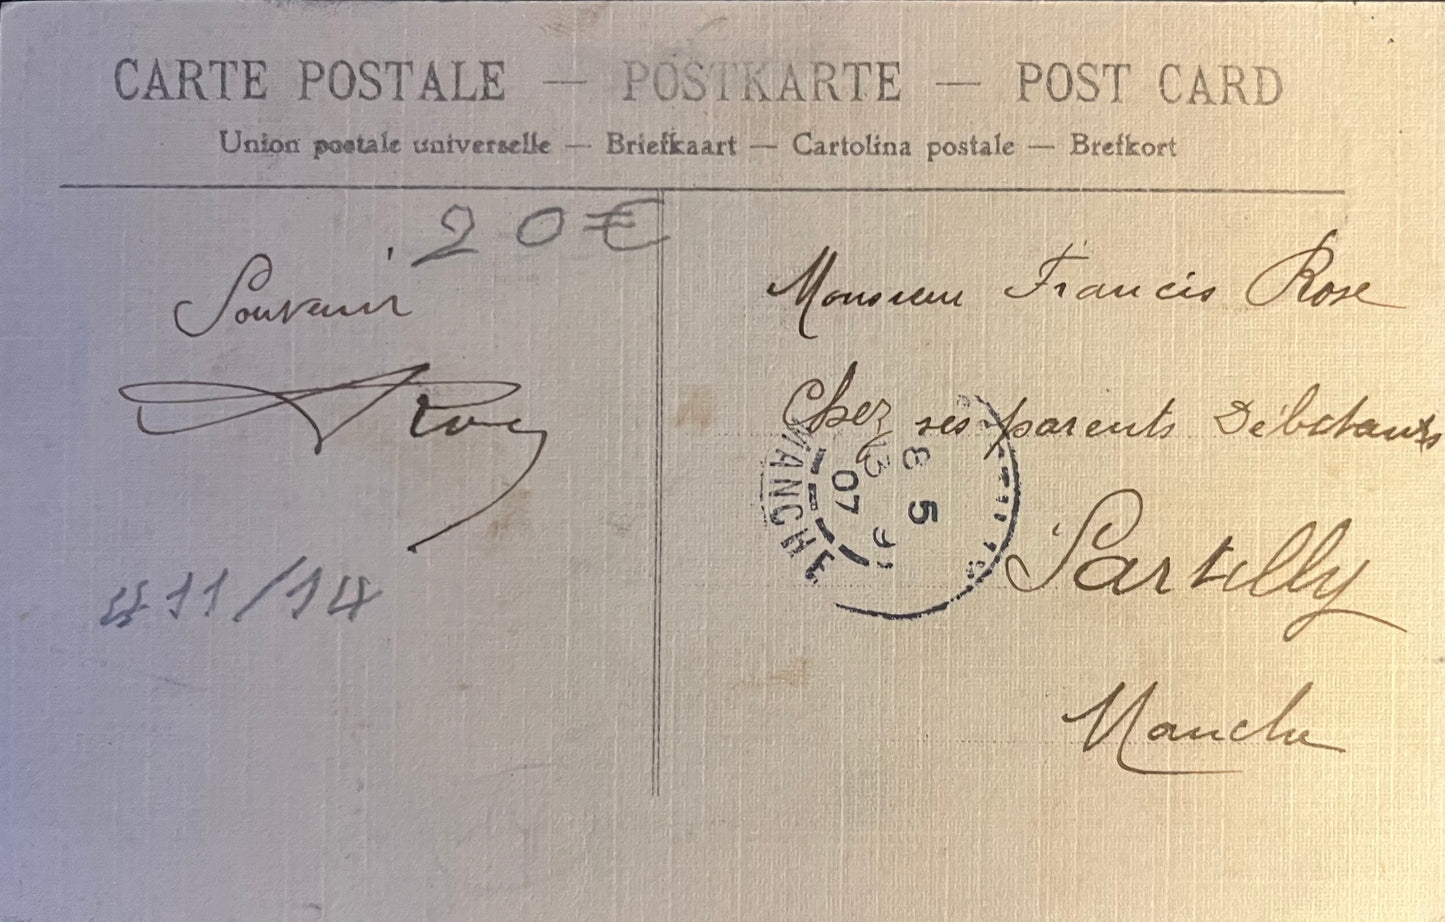 CARTE POSTALE — POSTKARTE — POST CARD
Union postale universelle — Briefkaart — Cartolina postale — Brefkort
20€
Souvenir
#11/14
Monsieur Francis Rose
Chez ses parents Débitants
Sartilly
Manche
MANCHE
8 5
07